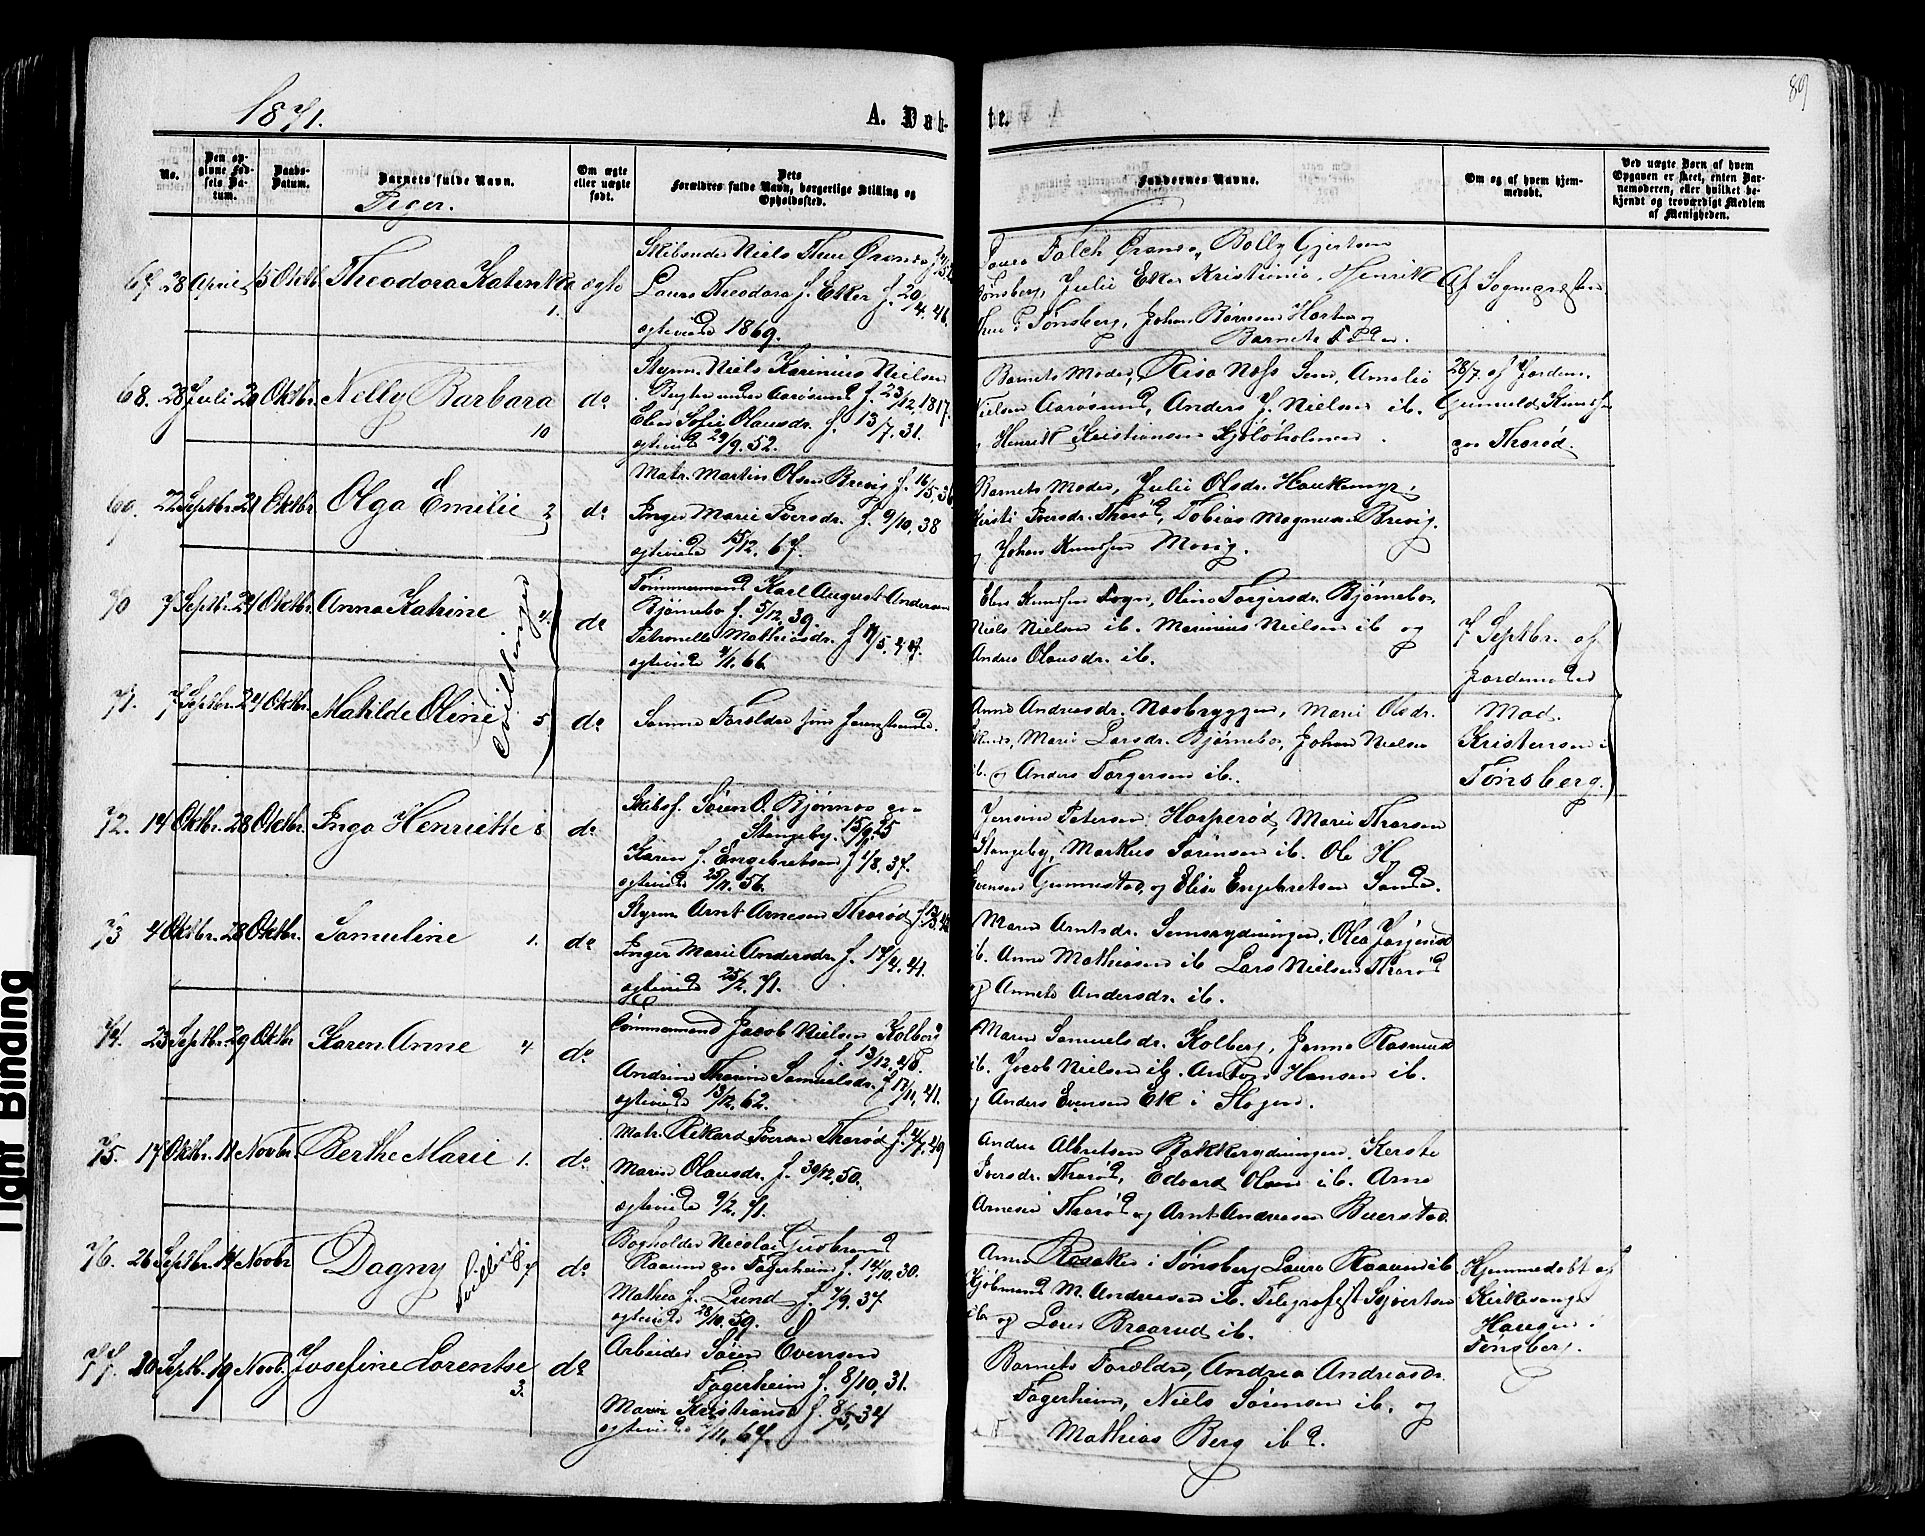 1871.
A. Døb-
te.
89
No.
Den opgivne Fødsels Datum.
Daabs-Datum.
Barnets fulde Navn.
Piger.
Om ægte eller uægte født.
Dets Forældres fulde Navn, borgerlige Stilling og Opholdssted.
Faddernes Navne.
Om og af hvem hjemmedøbt.
Ved uægte Børn af hvem Opgaven er skeet, enten Barnemoderen, eller hvilket bekjendt og troværdigt Medlem af Menigheden.
67. 28 April 15 Oktb. Theodora Katinka 1. ægte
Laura Theodora f. Eker f. 20/4. 46.
ægteviede 1869.
Tønsberg, Julie Eker Kristiania, Henrik
Thue Tønsberg, Johan Børresen Horten og
Barnets Fader.
Af Sognepresten
68. 28 Juli 20 Oktbr. Nelly Barbara 10 do
Styrm. Niels Karinius Nielsen
Bugten under Aarøsund f. 23/12 1817.
Elen Sofie Olausdr. f. 13/7. 31.
ægteviede 29/9. 52.
Barnets Moder, Risa Næss Sem, Amalie
Nielsen Aarøsund, Anders J. Nielsen ib.
og Henrik Kristiansen Kjøløholmen.
28/7. af Jordem.
Gunnild Knudsen
Thorød.
69. 22 Septbr. 21 Oktbr. Olga Emilie 2 do
Matr. Martin Olsen Brevig f. 16/5. 36
Inger Marie Iversdr. f. 9/10. 38
ægteviede 15/12. 67.
Barnets Moder, Julie Olsdr. Haukemyr,
Kirsti Iversdr. Thorød, Tobias Magnusen Brevig.
og Johan Knudsen Movig.
70 7 Septbr. 24 Oktbr. Anna Katrine 4. do
Tvillinger
Tømmermand Karl August Andersen
Bjørnebo f. 5/12. 39.
Petronelle Mathiasdr. f. 11/5. 47.
ægteviede 4/1. 66.
Elen Knudsen Fogn, Oline Torgersdr. Bjørnebo,
Niels Nielsen ib. Marinius Nielsen ib og
Andrea Olausdr. ib.
7 Septbr. af
Jordemoder
71. 7 Septbr. 24 Oktbr. Matilde Oline 5 do
Samme Forældre som foranstaaende.
Anne Andreasdr. Næsbryggen, Marie Olsdr.
Marie Larsdr. Bjørnebo, Johan Nielsen
ib. og Anders Torgersen ib.
Mad.
Kristensen i
Tønsberg.
72. 14 Oktbr. 28 Oktbr. Inga Henriette 8 do
Skibsf. Sören O. Bjønnes
Stangeby. 15/9. 25
Karen f. Engebretsen f. 1/8. 37.
ægteviede 25/11. 56.
Jensine Petersen Horperød, Marie Thorsen
Stangeby, Markus Sørensen ib. Ole H.
Evensen Gunnestad, og Elise Engebretsen Sande.
73 4 Oktbr. 28 Oktbr. Samueline 1. do
Styrm Arnt Arnesen Thorød
Inger Marie Andersdr. f. 14/4. 44.
ægteviede 25/2. 71.
Maren Arntsdr. Semsrydningen, Olea
ib. Anne Mathisen ib Lars Nielsen Thorød
og Annete Andersdr. ib.
74. 23 Septbr. 29 Oktbr Karen Anne 4 do
Tømmermand Jacob Nielsen Kolberg
f. 13/12.
Andrine Thorine Samuelsdr. f. 17/11. 41.
ægteviede 13/12. 62.
Maren Samuelsdr. Kolberg, Janna Rasmusd
ib. Jacob Nielsen ib. Anton Hansen ib.
og Anders Evensen Ek i Slagen.
75. 17 Oktbr. 11 Novbr. Berthe Marie 1. do
Matr. Rikard Iversen Thorød f.
Maren Olausdr. f. 30/12. 50.
ægteviede 9/2. 71.
Andrea Albretsen Bakkerydningen. Kerste
Iversdr. Thorød, Edvard Olsen ib. Arne
Arnesen Thorød og Arnt Andreasen Buerstad
76. 26 Septbr. 14 Novbr Dagny do
Tvilling
Bogholder Nicolai Gudbrand
Raaum Fagerheim f. 14/10. 30.
Mathea f. Lund f. 7/9. 37
ægteviede 28/10. 59.
Anne Rosaker i Tønsberg Laura Raaum ib
Kjøbmand M. Andreasen ib. Telegrafist Syvertsen
ib og Lars Braarud ib.
Hjemmedøbt af
Kirkesanger
Haagen i
Tønsberg.
77. 20 Septb. 19 Novb. Josefine Lorentse 3. do
Arbeider Sören Evensen
Fagerheim f. 8/10. 31.
Maren Kristiansd. f. 8/5. 34
ægteviede 67.
Barnets Forældre, Andrea Andreasdr.
Fagerheim, Niels Sørensen ib. og
Mathias Berg ibd.
Tight Binding